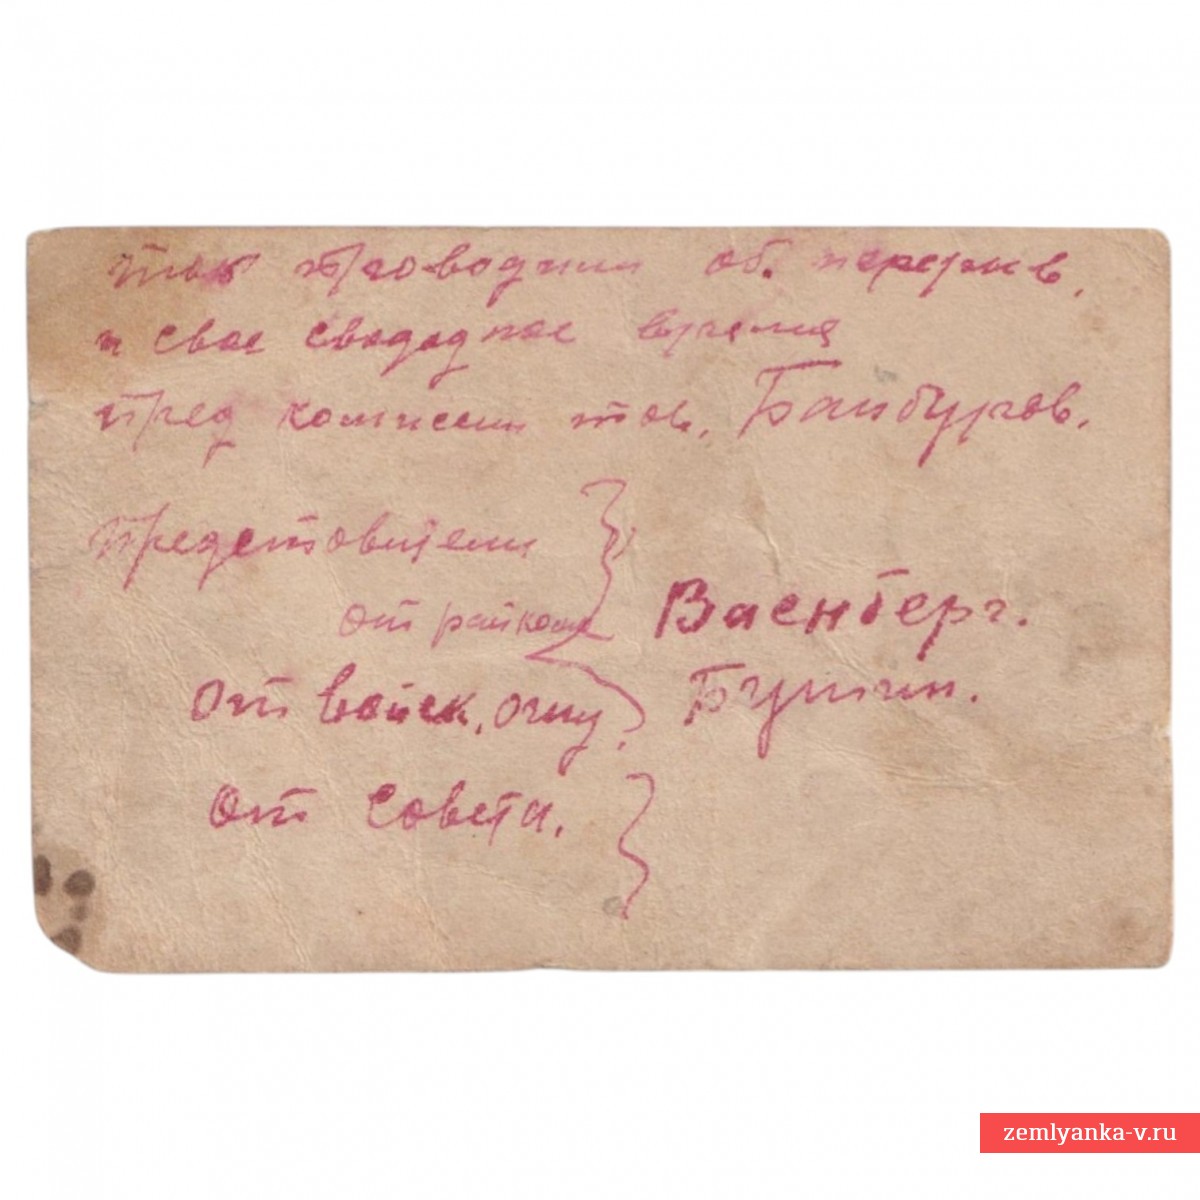 так проводим об. перерыв,
и свое свободное время
пред комиссии тов. Банбуров.
представители
от райкома Ваенберг.
от войск. Бутин.
от совета.
zemlyanka-v.ru